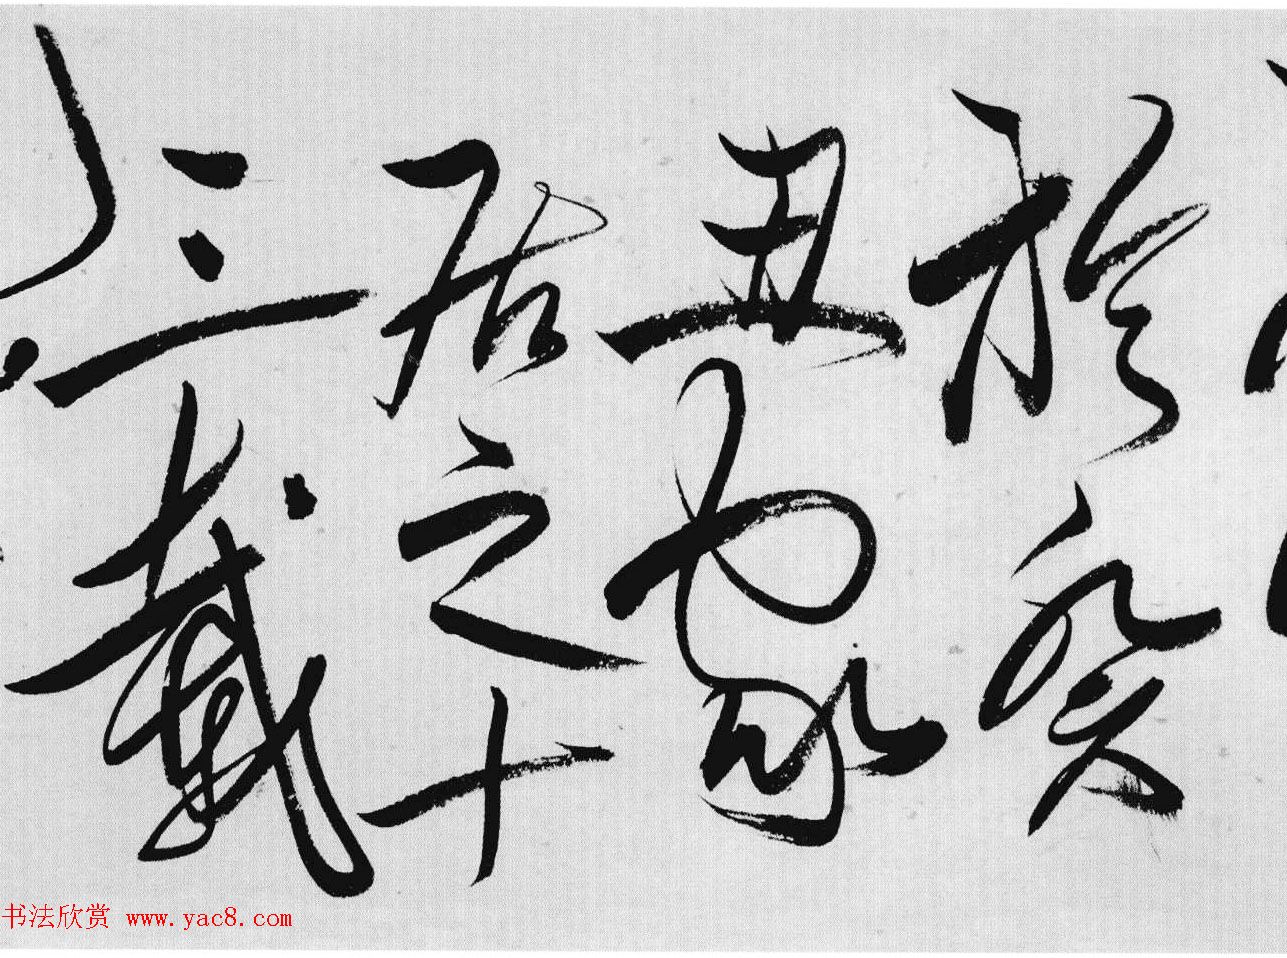 於癸
丑
居之十
三載
书法欣赏 www.yac8.com